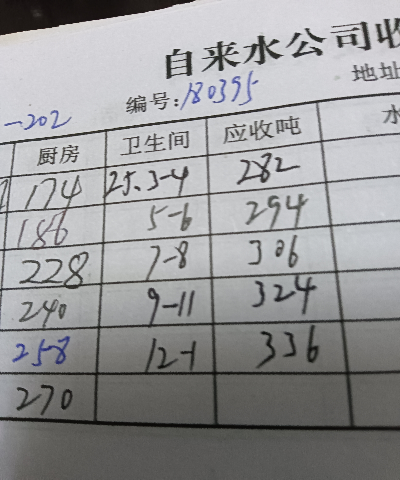 自来水公司收
编号:180395 地址
-202
厨房 卫生间 应收吨 水
174 25.3-4 282
186 5-6 294
228 7-8 306
240 9-11 324
258 12-1 336
270